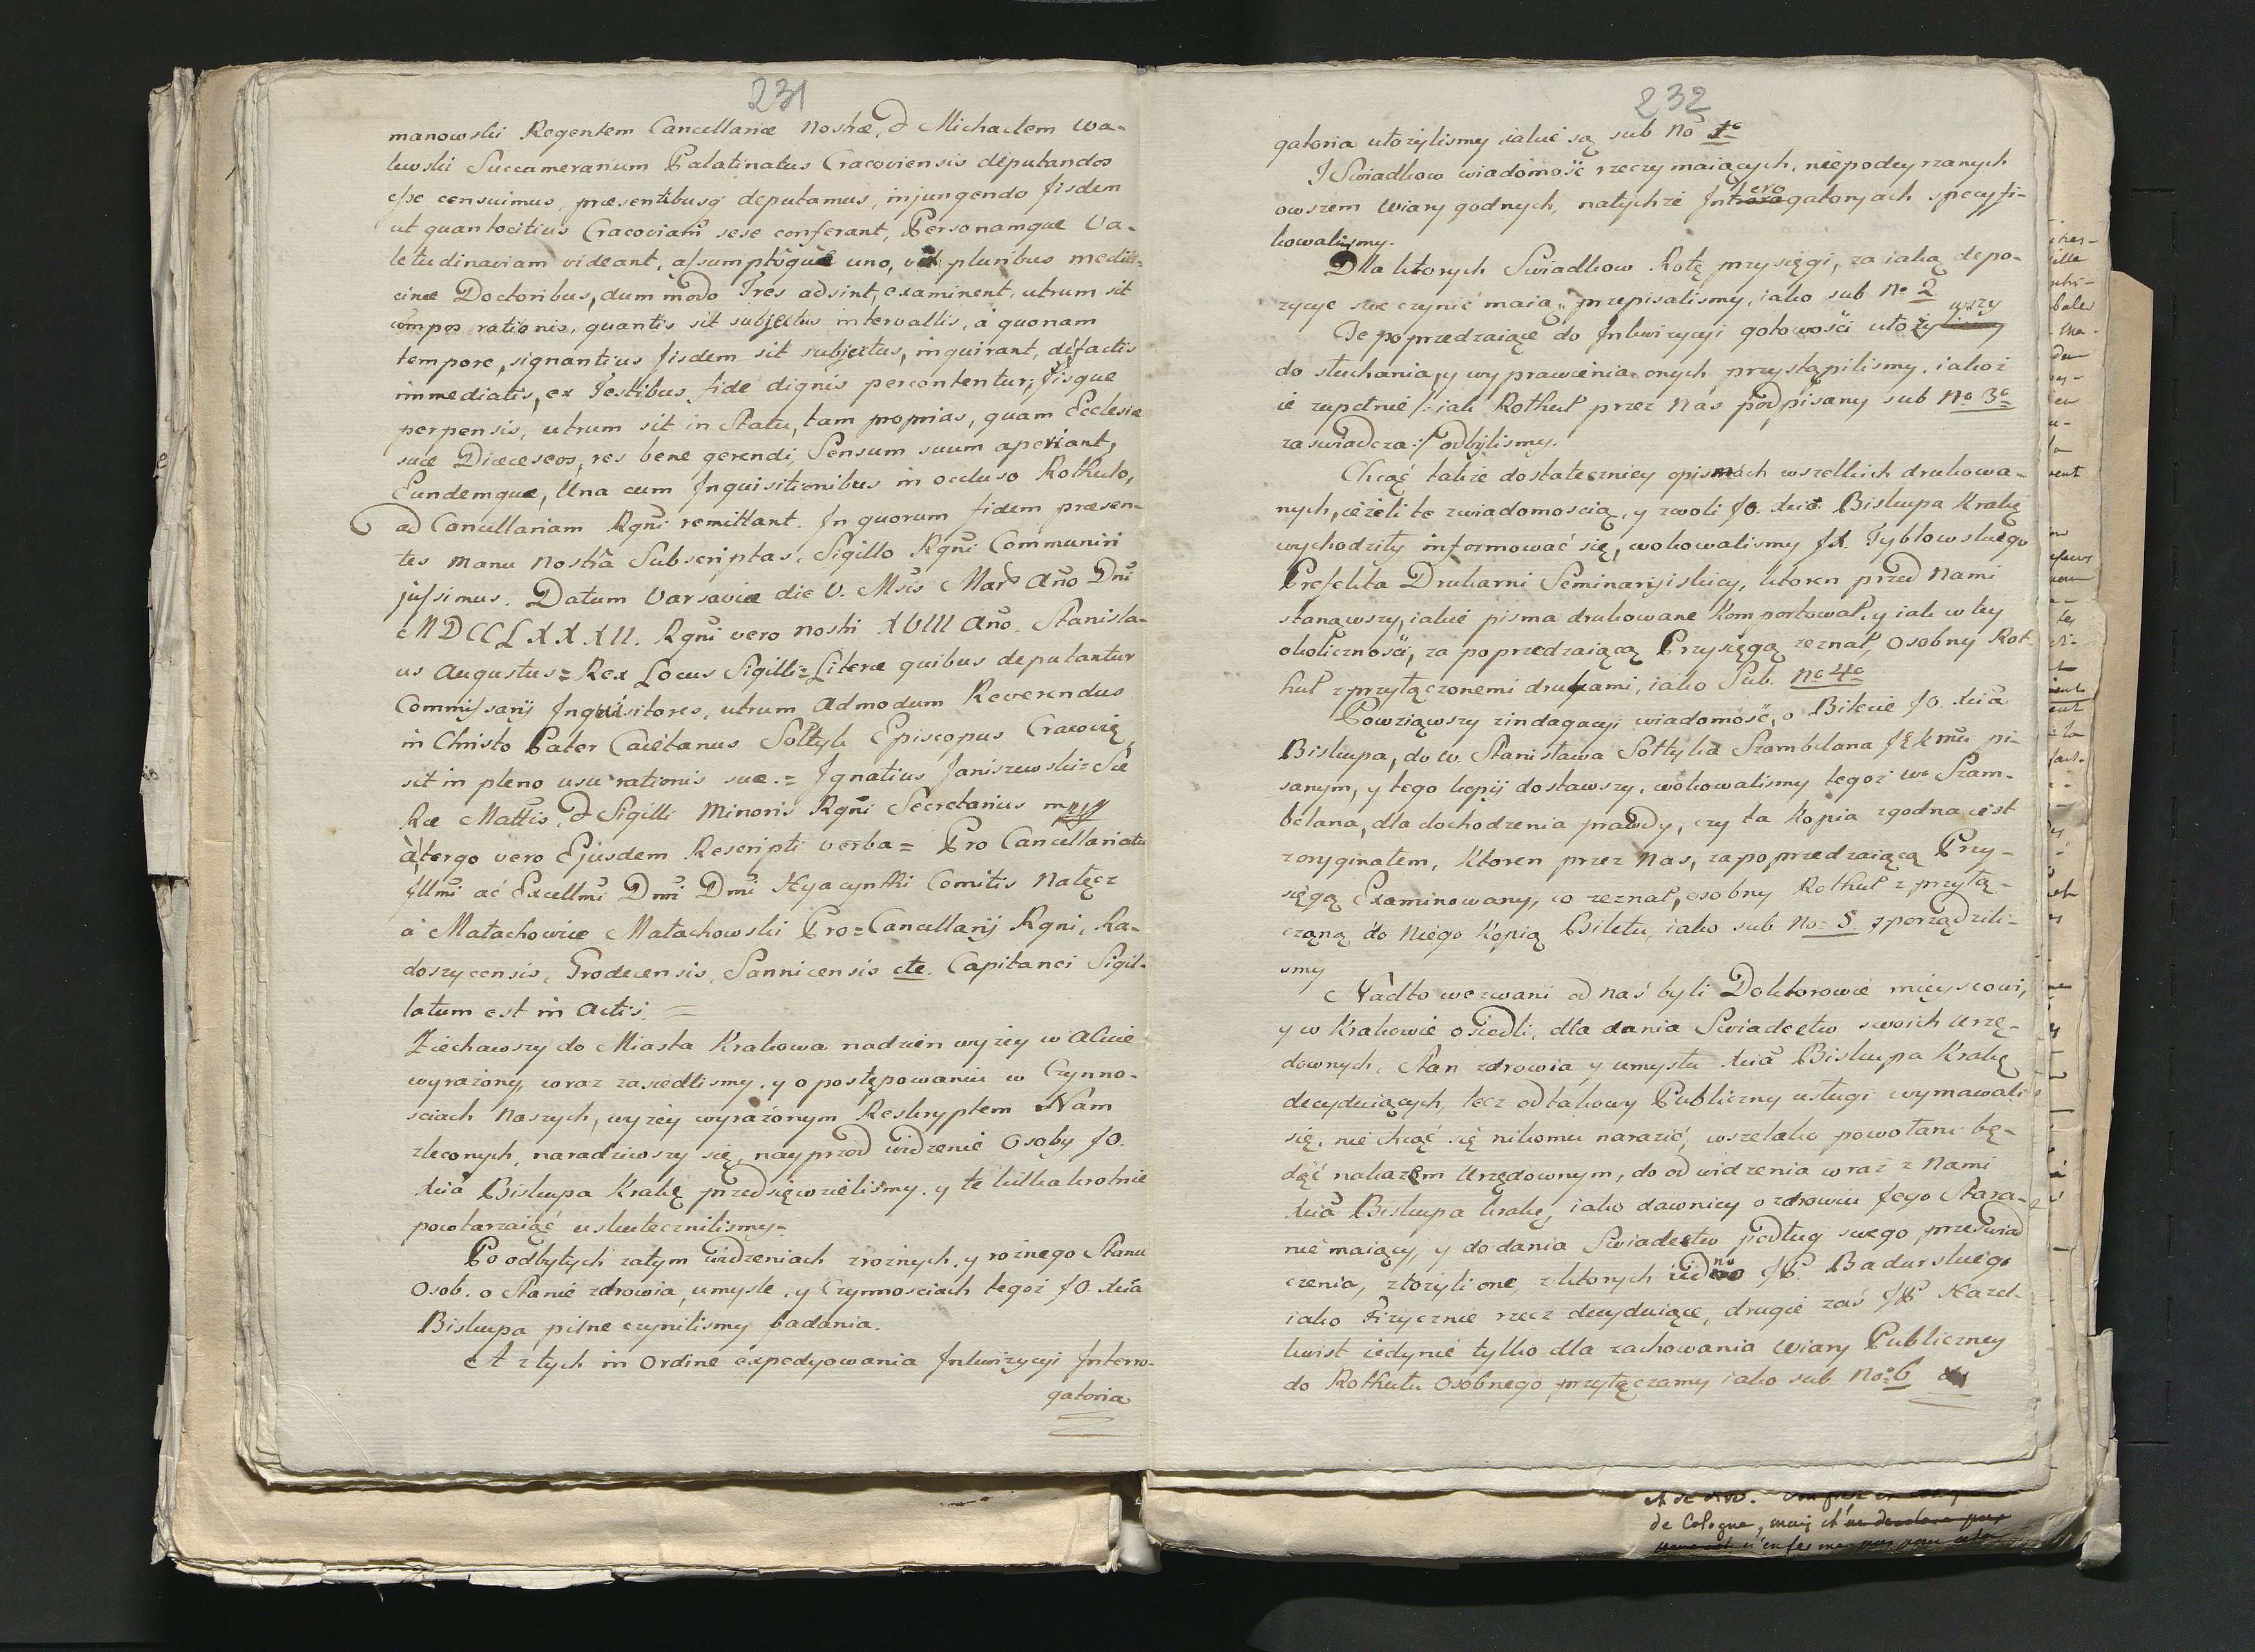 231
manowski Regentem Cancellariæ Nostræ, & Michaelem Wa-
lewski Succamerarium Palatinatus Cracoviensis deputandos
esse censuimus, præsentibusq deputamus, injungendo Iisdem
ut quantocitius Cracoviam sese conferant, Personamque Va-
letudinariam videant, assumptoque uno, vel pluribus medi-
cinæ Doctoribus, dum modo Tres adsint, examinent, utrum sit
compos rationis, quantis sit subjectus intervallis, à quonam
tempore, signantius Iisdem sit subjectus, inquirant, de factis
immediatis, ex Testibus fide dignis percontentur, Iisque
perpensis, utrum sit in Statu, tam proprias, quam Ecclesiæ
suæ Diæceseos, res bene gerendi, Sensum suum aperiant,
Eundemque, Una cum Inquisitionibus in occluso Rothulo,
ad Cancellariam Rgni remittant. In quorum fidem præsen-
tes manu Nostrâ Subscriptas, Sigillo Rgni Communiri
jussimus. Datum Varsaviæ die V. Msis Mar Año Dni
MDCCLXXXII. Rgni vero nostri XVIII Año. Stanisla-
us Augustus = Rex Locus Sigilli = Literæ quibus deputantur
Commissarij Inquisitores, utrum Admodum Reverendus
in Christo Pater Caietanus Sołtyk Episcopus Cracovię,
sit in pleno usu rationis suæ. = Ignatius Janiszewski = Sæ
Ræ Mattis, & Sigilli Minoris Rgni Secretarius mpp
à tergo vero Ejusdem Rescripti verba = Pro Cancellariatu
Illmi ac Excellmi Dni Dni Hyacynthi Comitis Nałęcz
à Małachowice Małachowski Pro = Cancellarij Rgni, Ra-
doszycensis, Grodecensis, Sannicensis etc. Capitanei Sigil-
latum est in Actis. =
Ziechawszy do Miasta Krakowa nadzien wyżey w Akcie
wyrażony, wraz zasiedlismy, y o postępowaniu w Czynno-
sciach Naszych, wyżey wyrażonym Reskryptem Nam
zleconych, naradziwszy się, nayprzod widzenie Osoby JO.
Xcia Biskupa Krakę przedsięwzielismy, y te kilkakrotnie
powtarzaiąc uskutecznilismy.
Po odbytych zatym widzeniach zrożnych, y rożnego Stanu
Osob, o Stanie zdrowia, umysle, y Czynnosciach tegoż JO. Xcia
Biskupa pilne czynilismy badania.
A z tych in Ordine expedyowania Inkwizycyi Interro-
gatoria
232
gatoria ułożylismy iakie są sub No 1o
I Swiadkow wiadomość rzeczy maiących, niepodeyrzanych
owszem Wiary godnych, natychże Interogatoryach specyfi-
kowalismy.
Dla ktorych Swiadkow Rotę przysięgi, za iaką depo-
zycye swe czynić maią, przepisalismy, iako sub No 2
Te poprzedzaiące do Inkwizycyi gotowości ułożywszy
do słuchania, y wyprawienia onych przystąpilismy, iakoż
ie zupełnie /: iak Rothuł przez Nas podpisany sub No 3o
zaswiadcza :/ odbylismy.
Chcąc także dostateczniey opismach wszelkich drukowa-
nych, ieżeli te zwiadomoscią, y zwoli JO. Xcia Biskupa Krakę
wychodziły informować się, wokowalismy JX. Tybłowskiego
Prefekta Drukarni Seminaryiskiey, ktoren przed Nami
stanąwszy, iakie pisma drukowane komportował, y iak w tey
okoliczności, za poprzedzaiącą Przysięgą zeznał, osobny Rot-
huł z przyłączonemi drukami, iako Sub. No 4o
Powziąwszy zindagacyi wiadomość, o Bilecie JO. Xcia
Biskupa, do W. Stanisława Sołtyka Szambelana JKmci pi-
sanym, y tego kopij dostawszy, wokowalismy tegoż Wo Szam-
belana, dla dochodzenia prawdy, czy ta Kopia zgodna iest
zoryginałem, Ktoren przez Nas, za poprzedzaiącą Przy-
sięgą Examinowany, co zeznał, osobny Rothuł z przyłą-
czoną do Niego Kopią Biletu, iako sub No 5. sporządzili-
smy
Nadto wezwani od nas byli Doktorowie mieyscowi,
y w Krakowie osiedli, dla dania Swiadectw swoich Urzę-
downych, Stan zdrowia y umysłu Xcia Biskupa Krakę
decyduiących, lecz od takowy Publiczny usługi wymawali
się, nie chcąc się nikomu narazić, wszelako powołani bę-
dąc nakazem Urzędownym, do odwidzenia wraz z Nami
Xcia Biskupa Krakę, iako dawniey o zdrowiu Jego Stara-
nie maiący, y do dania Swiadectw podług swego przeswiad
czenia, złożyli one, z ktorych iedno JP. Badurskiego
iako Fizycznie rzecz decyduiące, drugie zaś JP Hazel-
kwist iedynie tylko dla zachowania Wiary Publiczney
do Rothułu Osobnego przyłączamy iako sub No 6
de Cologne, mais